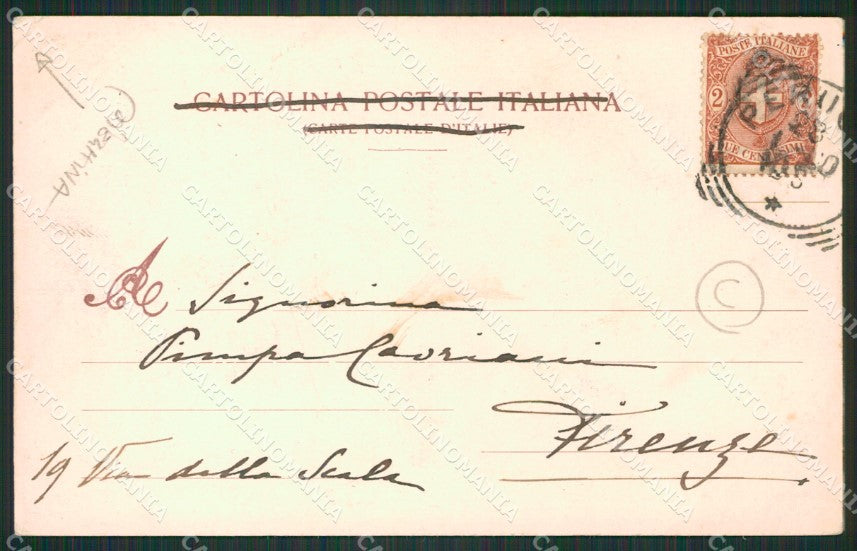 CARTOLINA POSTALE ITALIANA
(CARTE POSTALE D'ITALIE)
POSTE ITALIANE
2
DUE CENTESIMI
A Signorina
Pimpa Cavriani
Firenze
19 Via della Scala
C
CARTOLINOMANIA